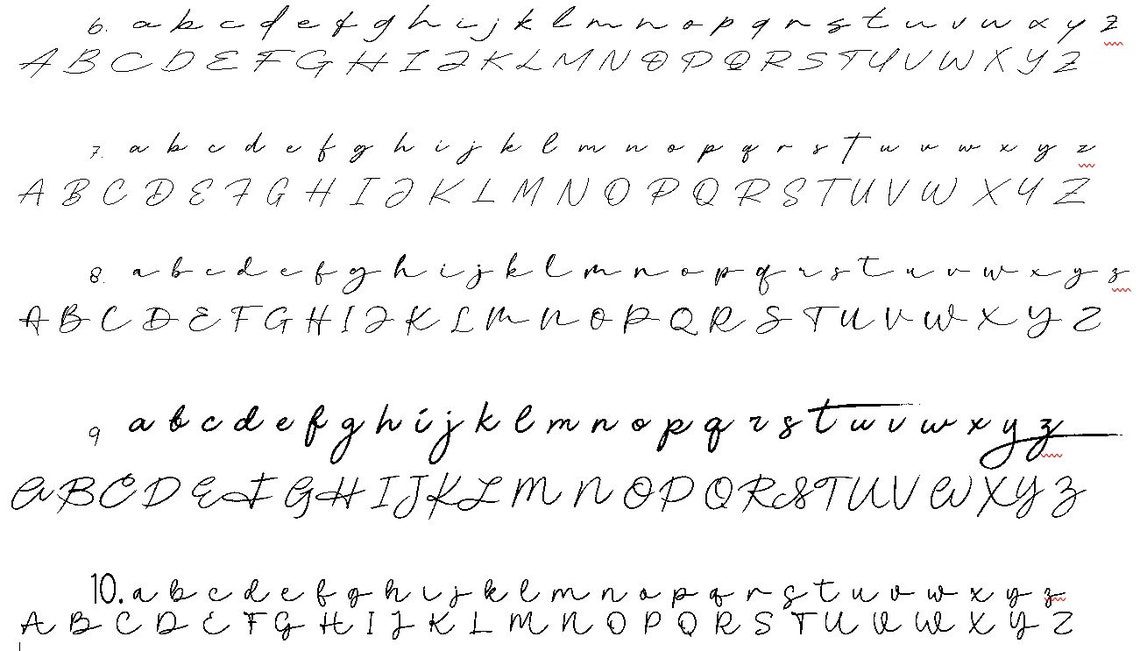 6. a b c d e f g h i j k l m n o p q r s t u v w x y z
A B C D E F G H I J K L M N O P Q R S T U V W X Y Z
7. a b c d e f g h i j k l m n o p q r s t u v w x y z
A B C D E F G H I J K L M N O P Q R S T U V W X Y Z
8. a b c d e f g h i j k l m n o p q r s t u v w x y z
A B C D E F G H I J K L M N O P Q R S T U V W X Y Z
9 a b c d e f g h i j k l m n o p q r s t u v w x y z
A B C D E F G H I J K L M N O P Q R S T U V W X Y Z
10. a b c d e f g h i j k l m n o p q r s t u v w x y z
A B C D E F G H I J K L M N O P Q R S T U V W X Y Z